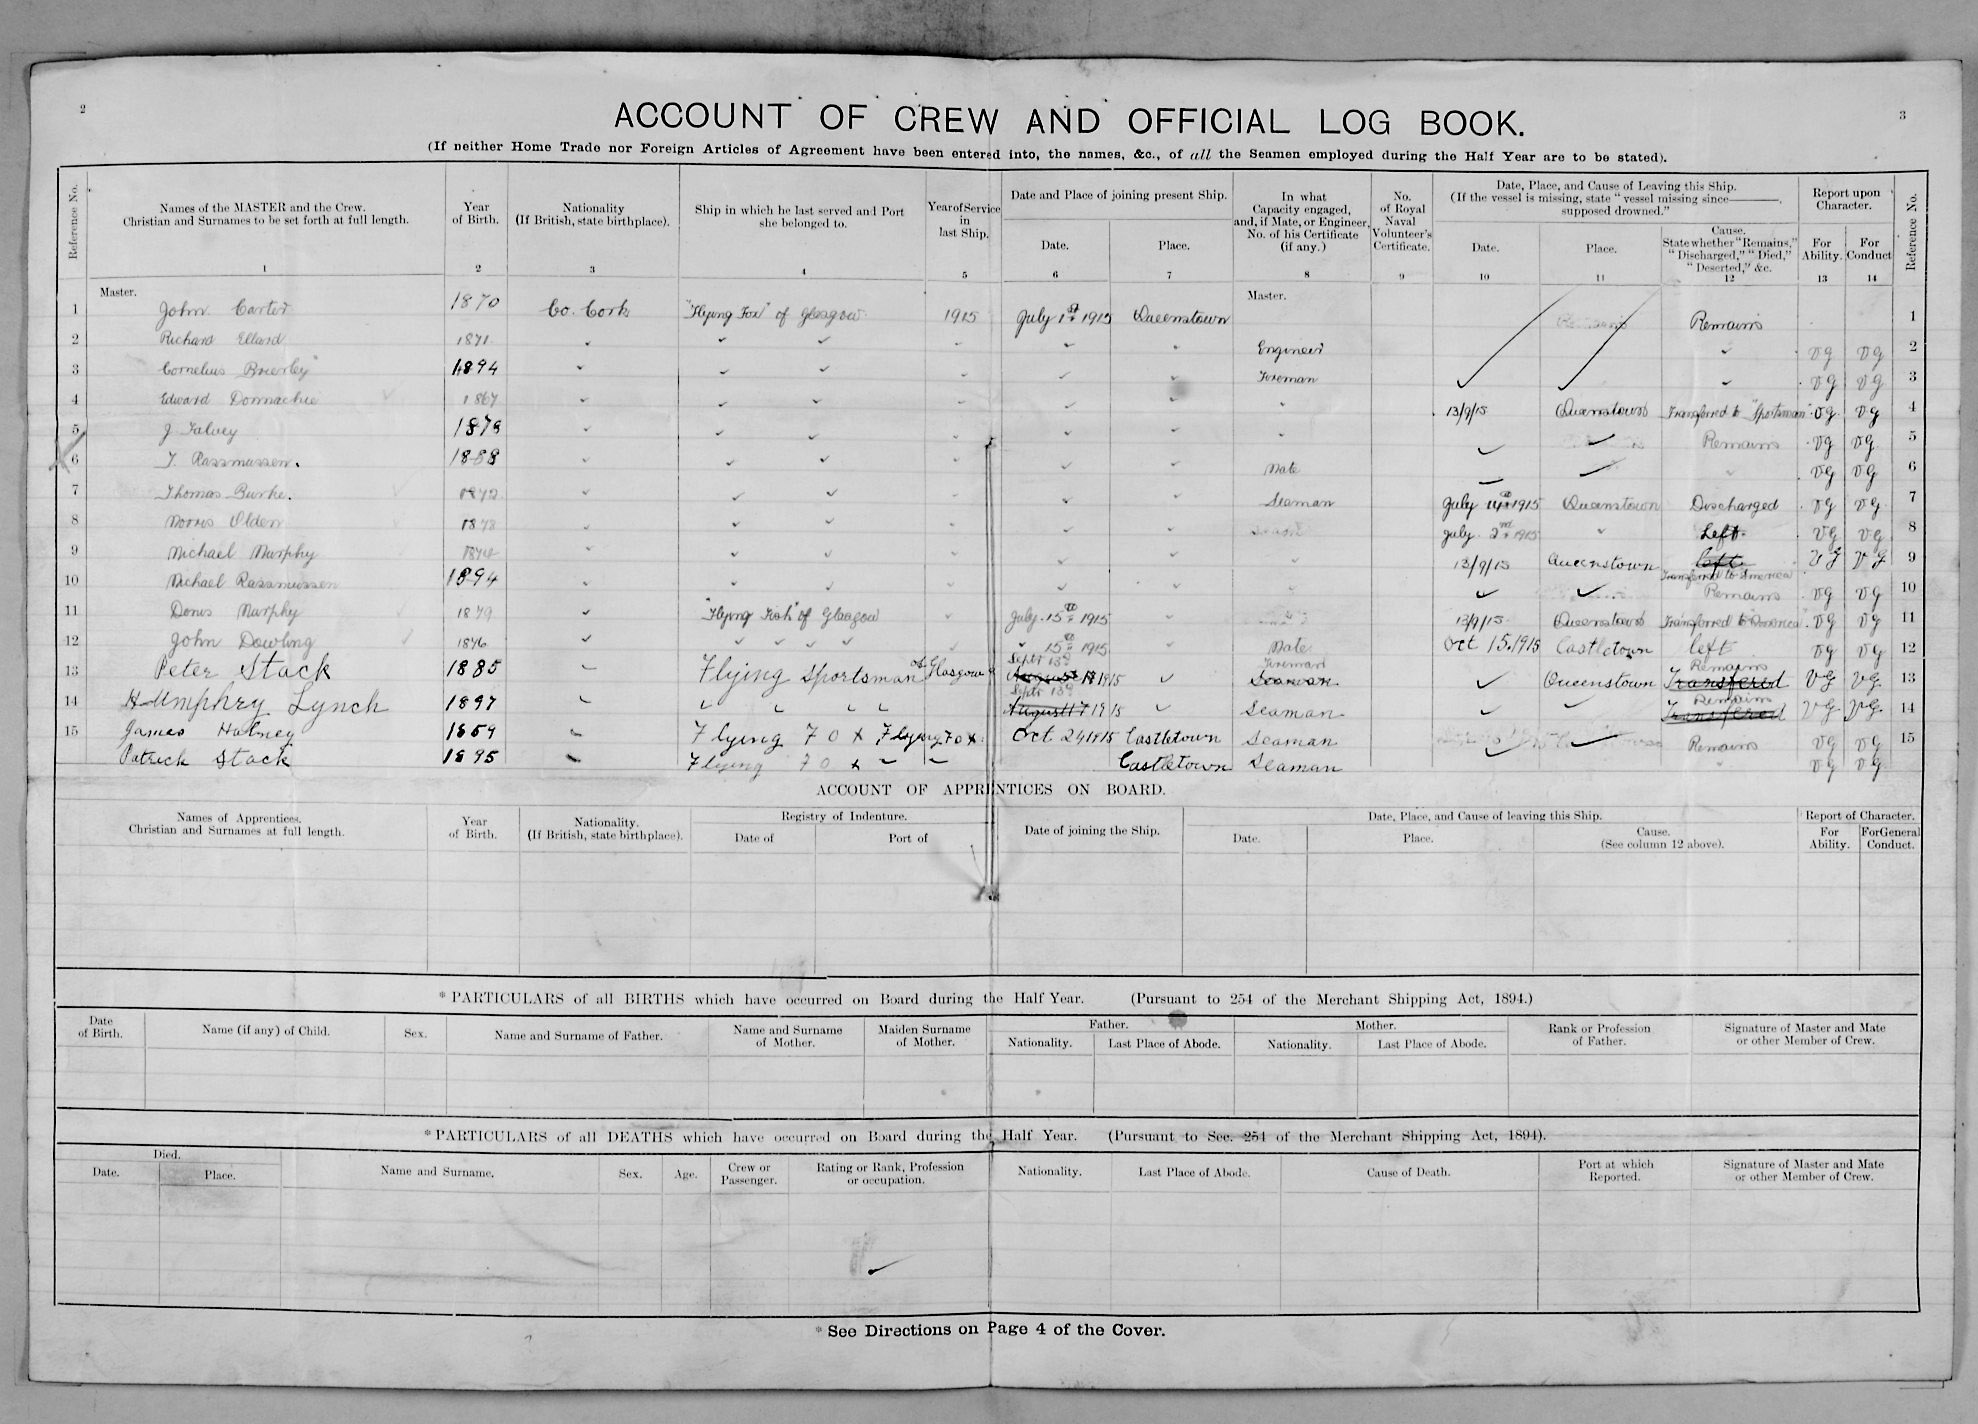 2
3
ACCOUNT OF CREW AND OFFICIAL LOG BOOK.
(If neither Home Trade nor Foreign Articles of Agreement have been entered into, the names, &c., of all the Seamen employed during the Half Year are to be stated).
Reference No. Names of the MASTER and the Crew. Christian and Surnames to be set forth at full length. Year of Birth. Nationality (If British, state birthplace). Ship in which he last served and Port she belonged to. Year of Service in last Ship. Date and Place of joining present Ship. Date. Place. In what Capacity engaged, and, if Mate, or Engineer, No. of his Certificate (if any.) No. of Royal Naval Volunteer's Certificate. Date, Place, and Cause of Leaving this Ship. (If the vessel is missing, state "vessel missing since———, supposed drowned." Date. Place. Cause. State whether "Remains," "Discharged," "Died," "Deserted," &c. Report upon Character. For Ability. For Conduct Reference No.
1 2 3 4 5 6 7 8 9 10 11 12 13 14
Master. Master.
1 John Carter 1870 Co. Cork "Flying Fox" of Glasgow 1915 July 1st 1915 Queenstown Remains 1
2 Richard Ellard 1871 Engineer VG VG 2
3 Cornelius Brierley 1894 Fireman VG VG 3
4 Edward Donnachie 1867 " 13/9/15 Queenstown Transferred to "Sportsman" VG VG 4
5 J Falvey 1879 " Remains VG VG 5
6 T. Rasmussen. 1888 Mate " VG VG 6
7 Thomas Burke. 1872 Seaman July 1915 Queenstown Discharged VG VG 7
8 Morris Olden 1878 July 2nd 1915 " Left VG VG 8
9 Michael Murphy 1874 " 13/9/15 Queenstown left Transferred to America VG VG 9
10 Michael Rasmussen 1894 " Remains VG VG 10
11 Denis Murphy 1879 "Flying Fish" of Glasgow July 15th 1915 " 13/9/15 Queenstown Transferred to "America" VG VG 11
12 John Dowling 1876 " 15th 1915 Mate Oct 15.1915 Castletown left VG VG 12
13 Peter Stack 1885 Flying Sportsman of Glasgow Septr 13th 1915 Fireman Seaman Queenstown Remains Transfered VG VG 13
14 Humphrey Lynch 1897 Septr 13th August 17 1915 Seaman Remains Transfered VG VG 14
15 James Halney 1859 Flying Fox Flying Fox Oct 24 1915 Castletown Seaman Remains VG VG 15
Patrick Stack 1895 Flying Fox Castletown Seaman " VG VG
ACCOUNT OF APPRENTICES ON BOARD.
Names of Apprentices. Christian and Surnames at full length. Year of Birth. Nationality. (If British, state birthplace). Registry of Indenture. Date of Port of Date of joining the Ship. Date, Place, and Cause of leaving this Ship. Date. Place. Cause. (See column 12 above). Report of Character. For Ability. For General Conduct.
* PARTICULARS of all BIRTHS which have occurred on Board during the Half Year. (Pursuant to 254 of the Merchant Shipping Act, 1894.)
Date of Birth. Name (if any) of Child. Sex. Name and Surname of Father. Name and Surname of Mother. Maiden Surname of Mother. Father. Nationality. Last Place of Abode. Mother. Nationality. Last Place of Abode. Rank or Profession of Father. Signature of Master and Mate or other Member of Crew.
* PARTICULARS of all DEATHS which have occurred on Board during the Half Year. (Pursuant to Sec. 254 of the Merchant Shipping Act, 1894).
Died. Date. Place. Name and Surname. Sex. Age. Crew or Passenger. Rating or Rank, Profession or occupation. Nationality. Last Place of Abode. Cause of Death. Port at which Reported. Signature of Master and Mate or other Member of Crew.
* See Directions on Page 4 of the Cover.